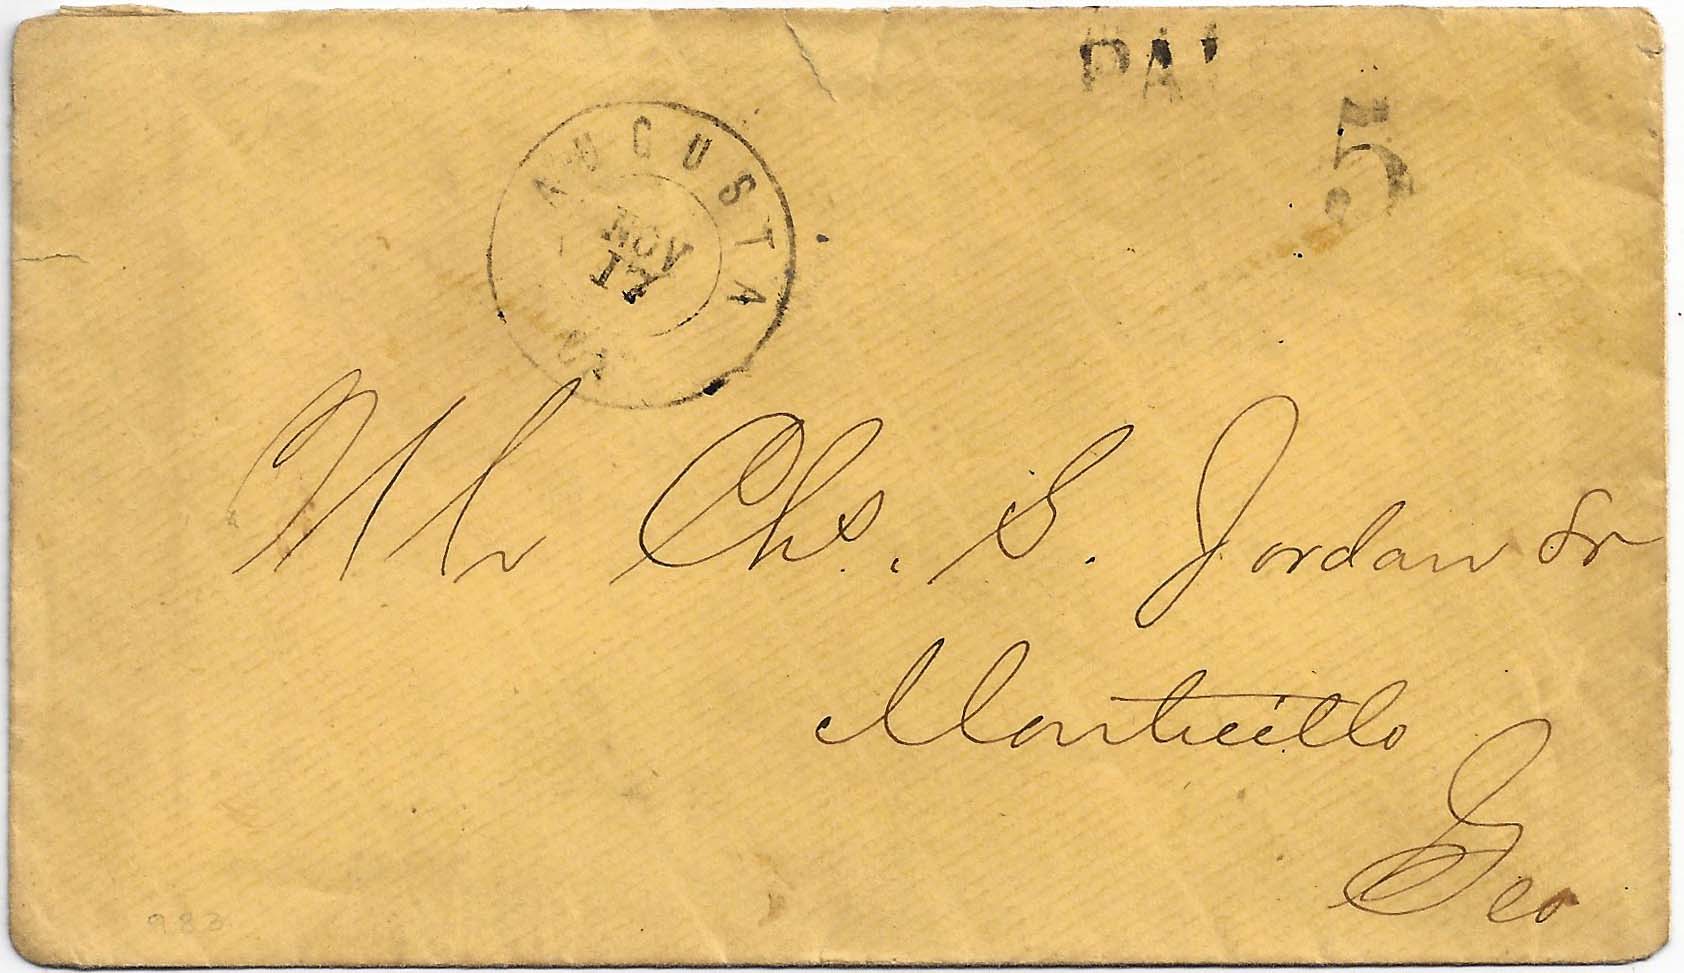 PAI
5
AUGUSTA
NOV
17
Mr Chs. S. Jordan Sr
Monticello
Geo
983